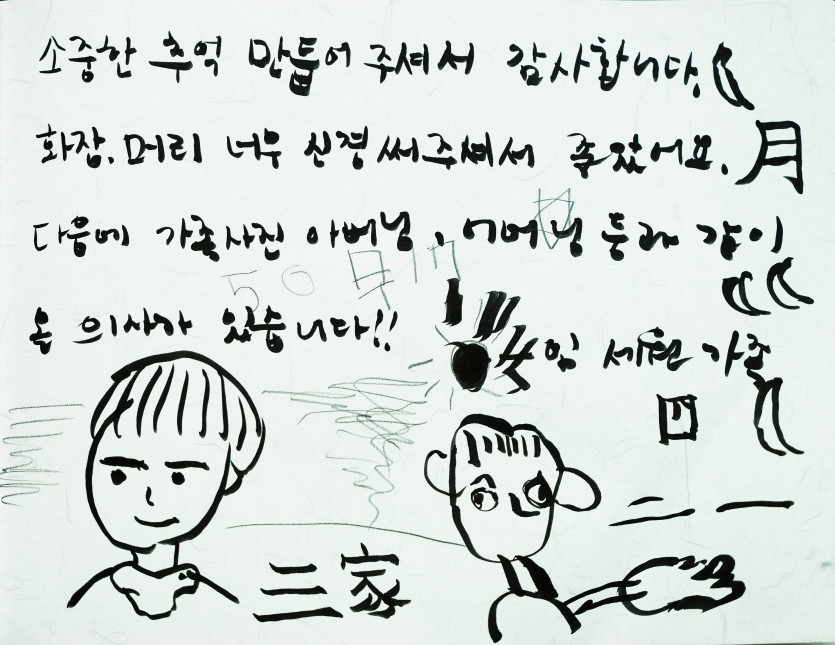 소중한 추억 만들어 주셔서 감사합니다.
화장, 머리 너무 신경써주셔서 좋았어요. 月
다음에 가족사진 아버님, 어머님 등과 같이
올 의사가 있습니다!!
임 세원 가족
四
二 一
三 家